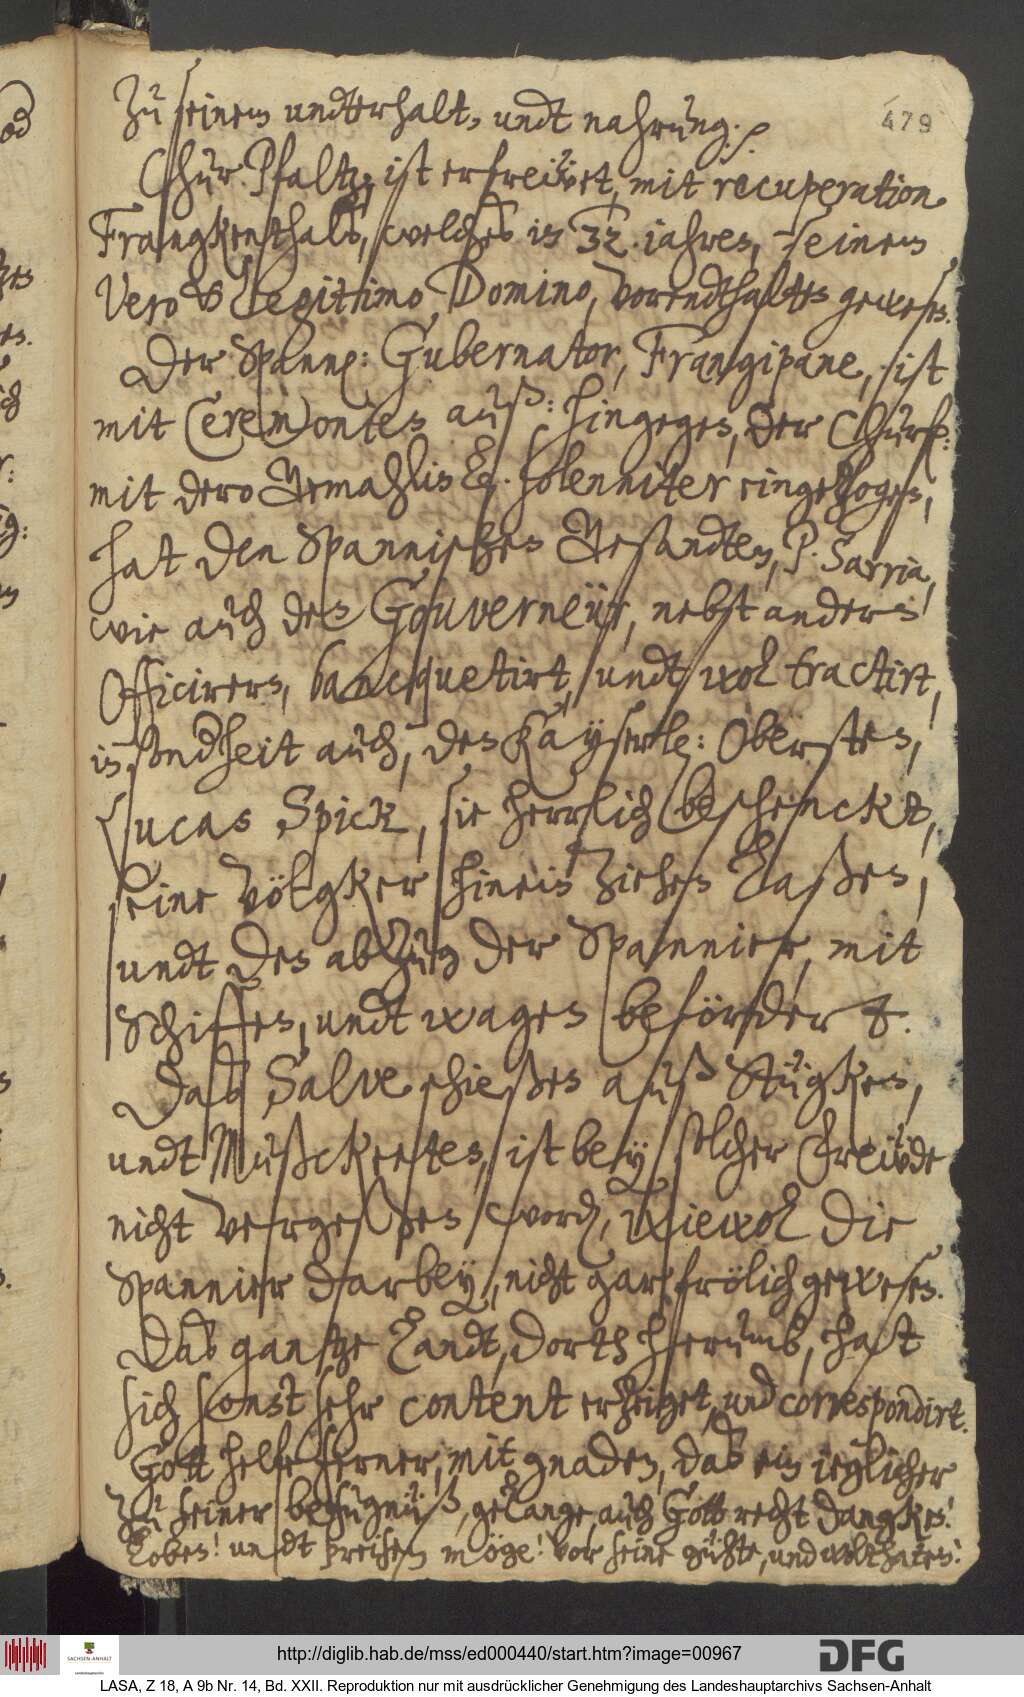 479
zu seinem undterhalt, undt nahrung. p
Chur Pfaltz, ist erfreẅet, mit recuperation
Frangkenthalß, welches in 32. jahren, seinem
Vero & Legittimo Domino, vorendthalten gewesen.
Der Spann: Gubernator, Frangipane, ist
mit Ceremonien auß: hingegen, der Churf:
mit dero Gemahlin L. solenniter eingezogen,
hat den Spannischen Gesandten, P. Sarria,
wie auch den Gouverneür, nebst andern
Officirern, bancquetirt, undt wol tractirt,
in sonderheit auch, den Kayserl: Obersten,
Lucas Spick, sie herrlich beschenckt,
seine Völgker hinein ziehen laßen,
undt den abzug der Spannier, mit
Schiffen, undt wagen befördert.
Daß Salve schießen auß Stügken,
undt Mußckeeten, ist bey solcher freüde
nicht vergeßen worden, wiewol die
Spannier darbey, nicht gar frölich gewesen.
Das gantze Landt, dorth herumb, hatt
sich sonst sehr content erzeiget, und correspondirt.
Gott helfe ferner, mit gnaden, daß ein ieglicher
zu seiner befugnüß, gelange, auch Gott recht dangken!
Loben! undt preisen möge! vor seine gühte, und wolthaten!
http://diglib.hab.de/mss/ed000440/start.htm?image=00967
DFG
SACHSEN-ANHALT
LASA, Z 18, A 9b Nr. 14, Bd. XXII. Reproduktion nur mit ausdrücklicher Genehmigung des Landeshauptarchivs Sachsen-Anhalt